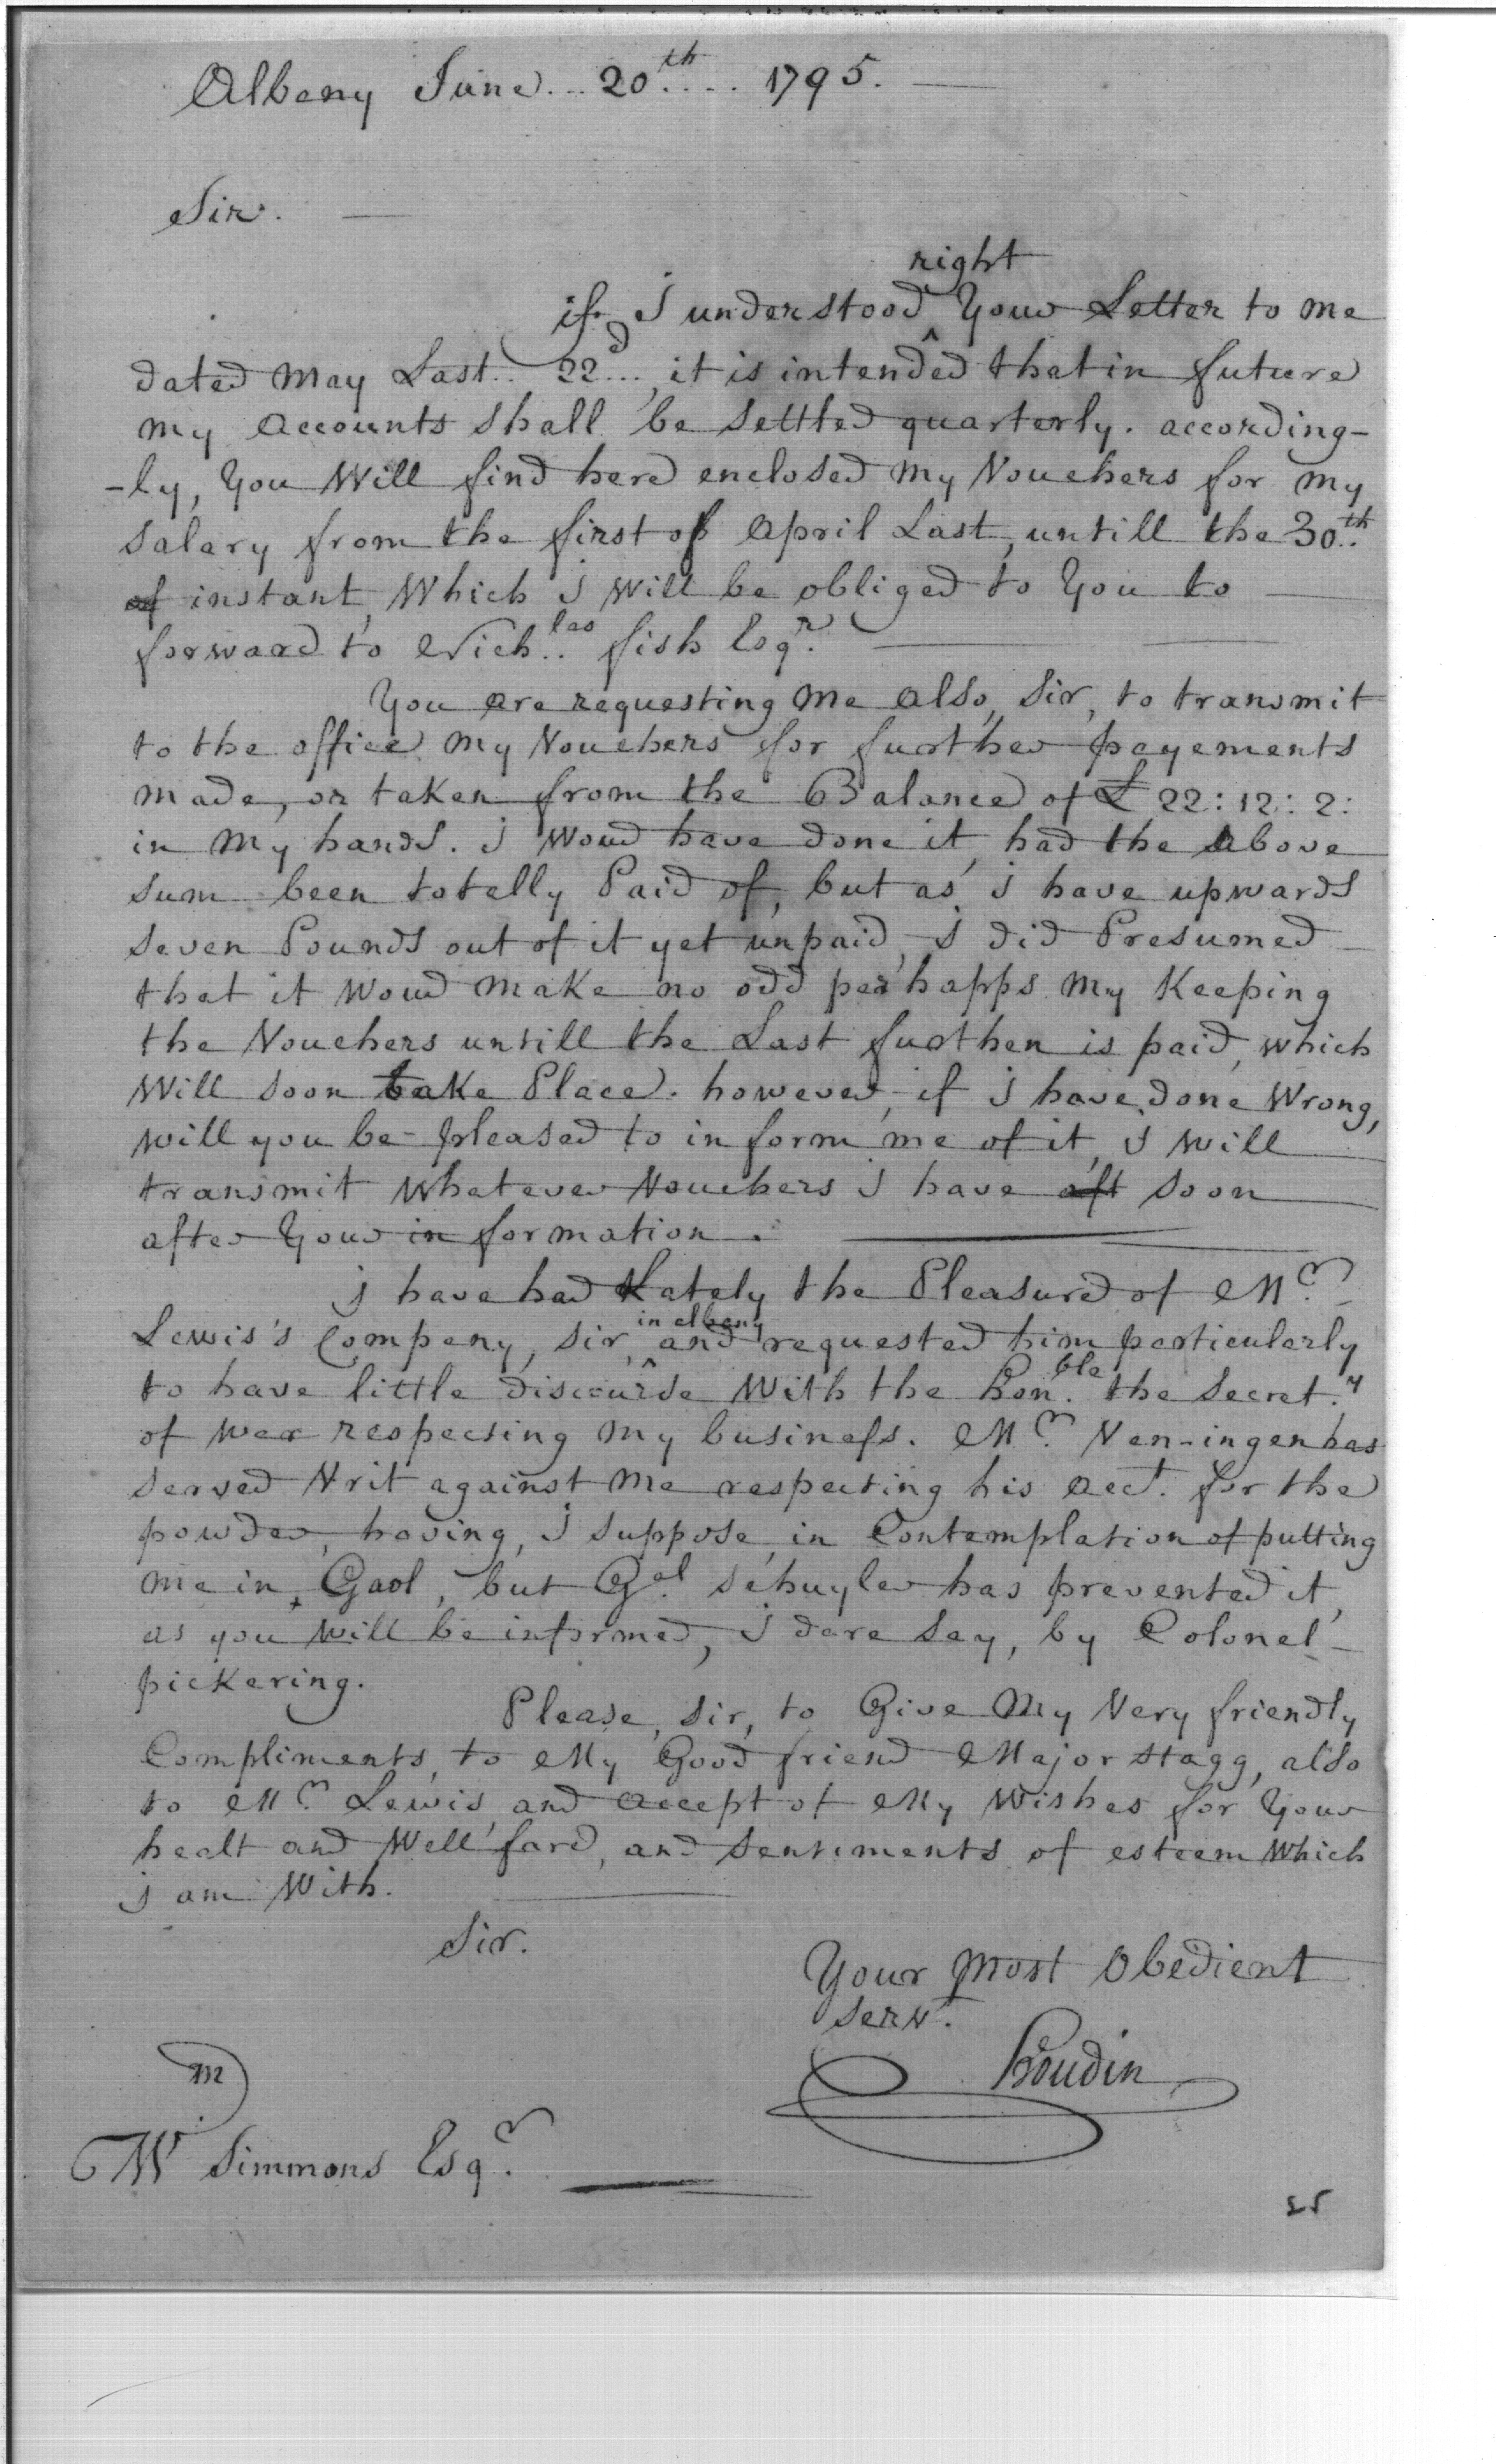 Albany June... 20th.... 1795.
Sir.
right
if I understood ^ Your Letter to me
dated May Last.. 22d..., it is intended that in future
my accounts shall be settled quarterly. according-
-ly, You Will find here enclosed my Vouchers for my
salary from the first of April Last, untill the 30th..
of instant, Which i will be obliged to You to
forward to Nichlas.. fish Esqr.
You are requesting me also, Sir, to transmit
to the office my Vouchers for further payements
made, or taken from the Balance of £ 22: 12: 2:
in my hands. i Woud have done it, had the above
sum been totally Paid of, but as i have upwards
seven Pounds out of it yet unpaid, i did Presumed
that it Woud make no odd perhapps my Keeping
the Vouchers untill the Last further is paid, which
Will soon take Place. however, if i have done Wrong,
will you be pleased to inform me of it, i will
transmit Whatever Vouchers i have aft soon
after Your information.
i have had Lately the Pleasure of Mr.
in albany
Lewis's Company, Sir, ^ and requested him particularly
to have little discourse With the honble. the Secret.y
of War respecting my business. Mr. Van-ingen has
served Writ against me respecting his acct. for the
powder, having, i suppose, in Contemplation of putting
me in Gaol, but Gal. Schuyler has prevented it,
as you will be informed, i dare say, by Colonel
pickering.
Please, Sir, to Give My Very friendly
Compliments, to My Good friend Major Stagg, also
to Mr. Lewis, and accept of My Wishes for Your
healt and Wellfare, and sentiments of esteem Which
i am With.
Sir.
Your most Obedient
serv.t
Proudin
Wm Simmons Esqr.